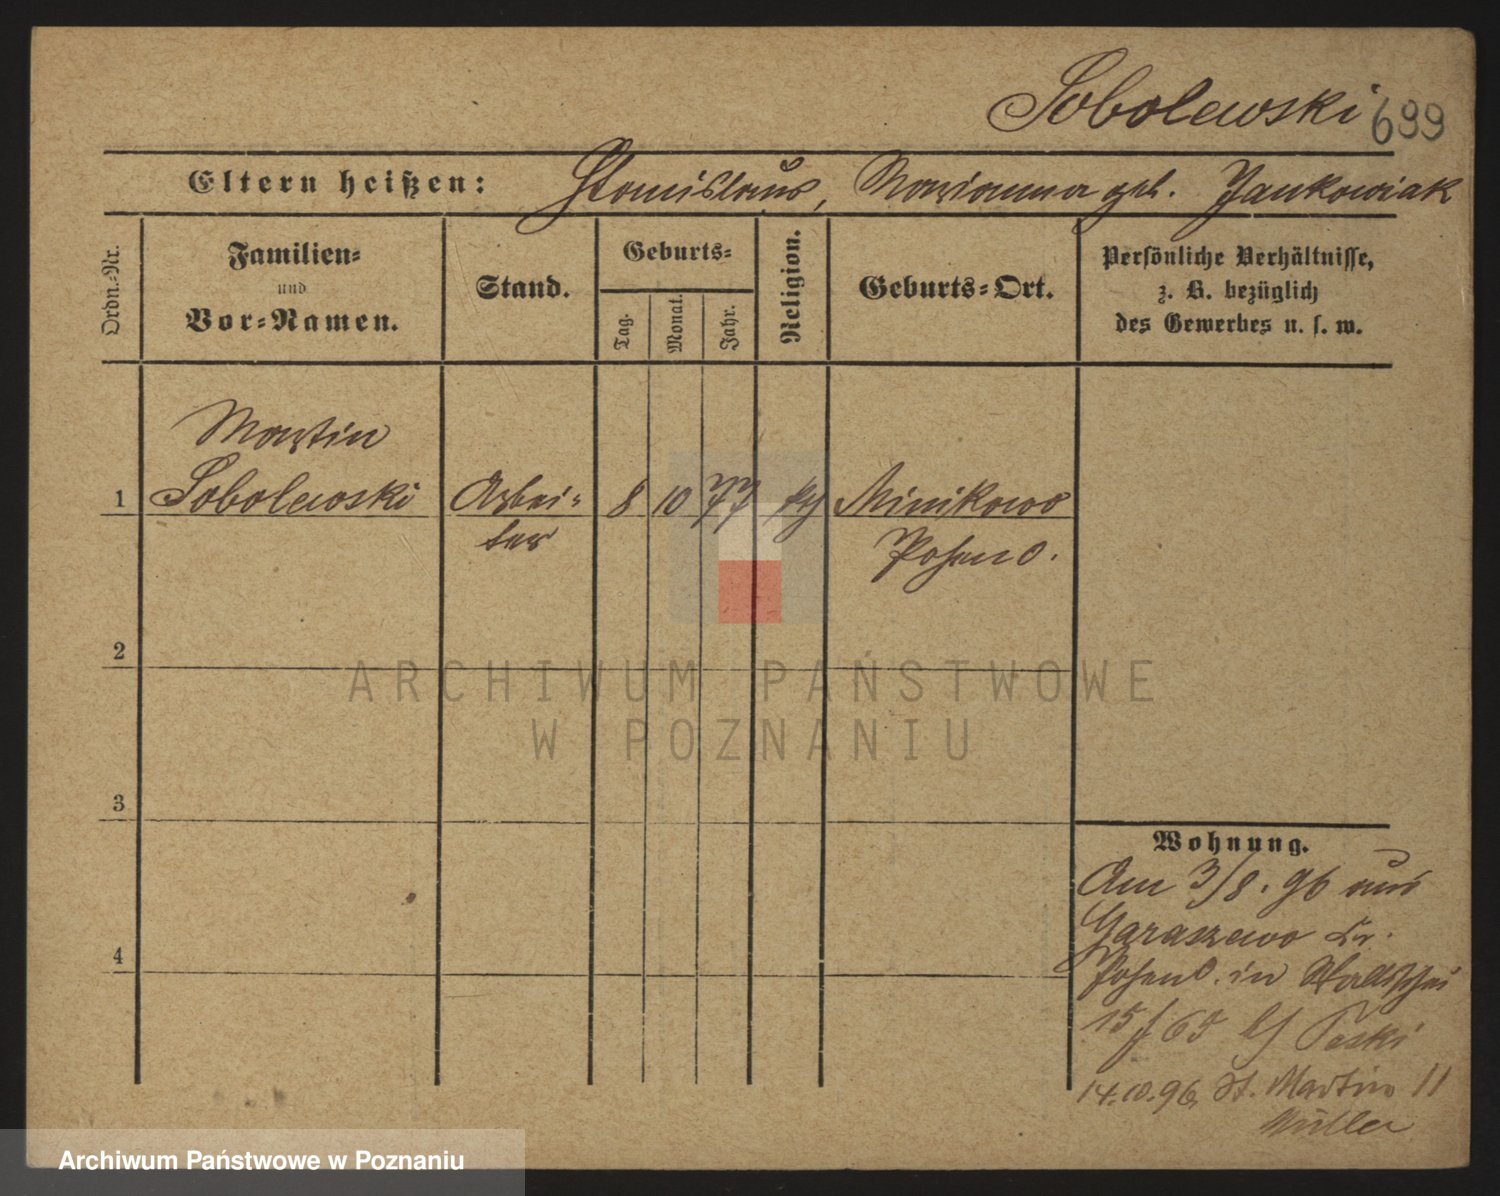 Sobolewski 699
Eltern heißen: Stanislaus, Marianna geb. Jankowiak
Ordn.-Nr.
Familien-
und
Vor-Namen.
Stand.
Geburts-
Tag.
Monat.
Jahr.
Religion.
Geburts-Ort.
Persönliche Verhältnisse,
z. B. bezüglich
des Gewerbes u. s. w.
Martin
1 Sobolewski Arbei- 8 10 77 kth Minikowo
ter Posen O.
2
ARCHIWUM PAŃSTWOWE
W POZNANIU
3
Wohnung.
Am 3/8. 96 aus
Garaszewo Kr.
Posen O. in
15/ 65 b/
4
14.10.96 St. Martin 11
Müller
Archiwum Państwowe w Poznaniu